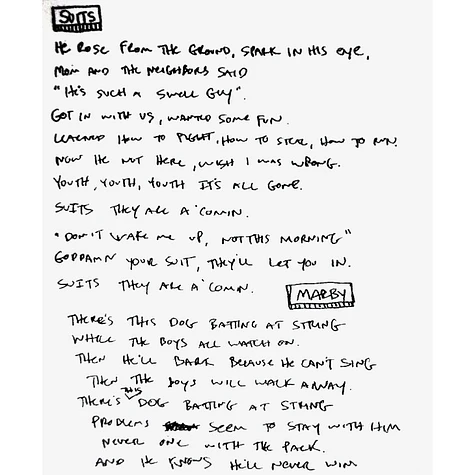 SUITS
HE ROSE FROM THE GROUND, SPARK IN HIS EYE,
MOM AND THE NEIGHBORS SAID
"HE'S SUCH A SWELL GUY".
GOT IN WITH US, WANTED SOME FUN.
LEARNED HOW TO FIGHT, HOW TO STEAL, HOW TO RUN.
NOW HE NOT HERE, WISH I WAS WRONG.
YOUTH, YOUTH, YOUTH IT'S ALL GONE.
SUITS THEY ARE A'COMIN.
"DON'T WAKE ME UP, NOT THIS MORNING"
GODDAMN YOUR SUIT, THEY'LL LET YOU IN.
SUITS THEY ARE A'COMIN.
MARBY
THERE'S THIS DOG BATTING AT STRING
WHILE THE BOYS ALL WATCH ON.
THEN HE'LL BARK BECAUSE HE CAN'T SING
THEN THE BOYS WILL WALK AWAY.
THERE'S THIS DOG BATTING AT STRING
PROBLEMS SEEM TO STAY WITH HIM
NEVER ONE WITH THE PACK.
AND HE KNOWS HE'LL NEVER WIN